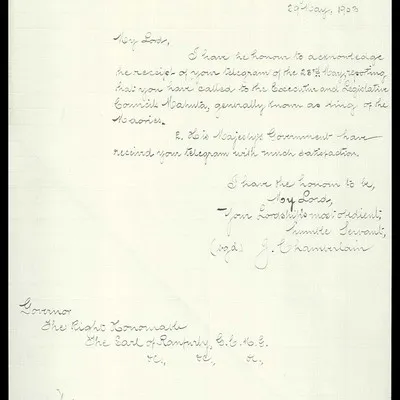 29 May, 1903
My Lord,
I have the honour to acknowledge
the receipt of your telegram of the 28th May, reporting
that you have called to the Executive and Legislative
Councils Mahuta, generally known as King of the
Maories.
2. His Majesty's Government have
received your telegram with much satisfaction.
I have the honour to be,
My Lord,
Your Lordship's most obedient,
humble Servant,
(sgd) J. Chamberlain
Governor
The Right Honourable
The Earl of Ranfurly, G.C.M.G.
&c., &c., &c.,